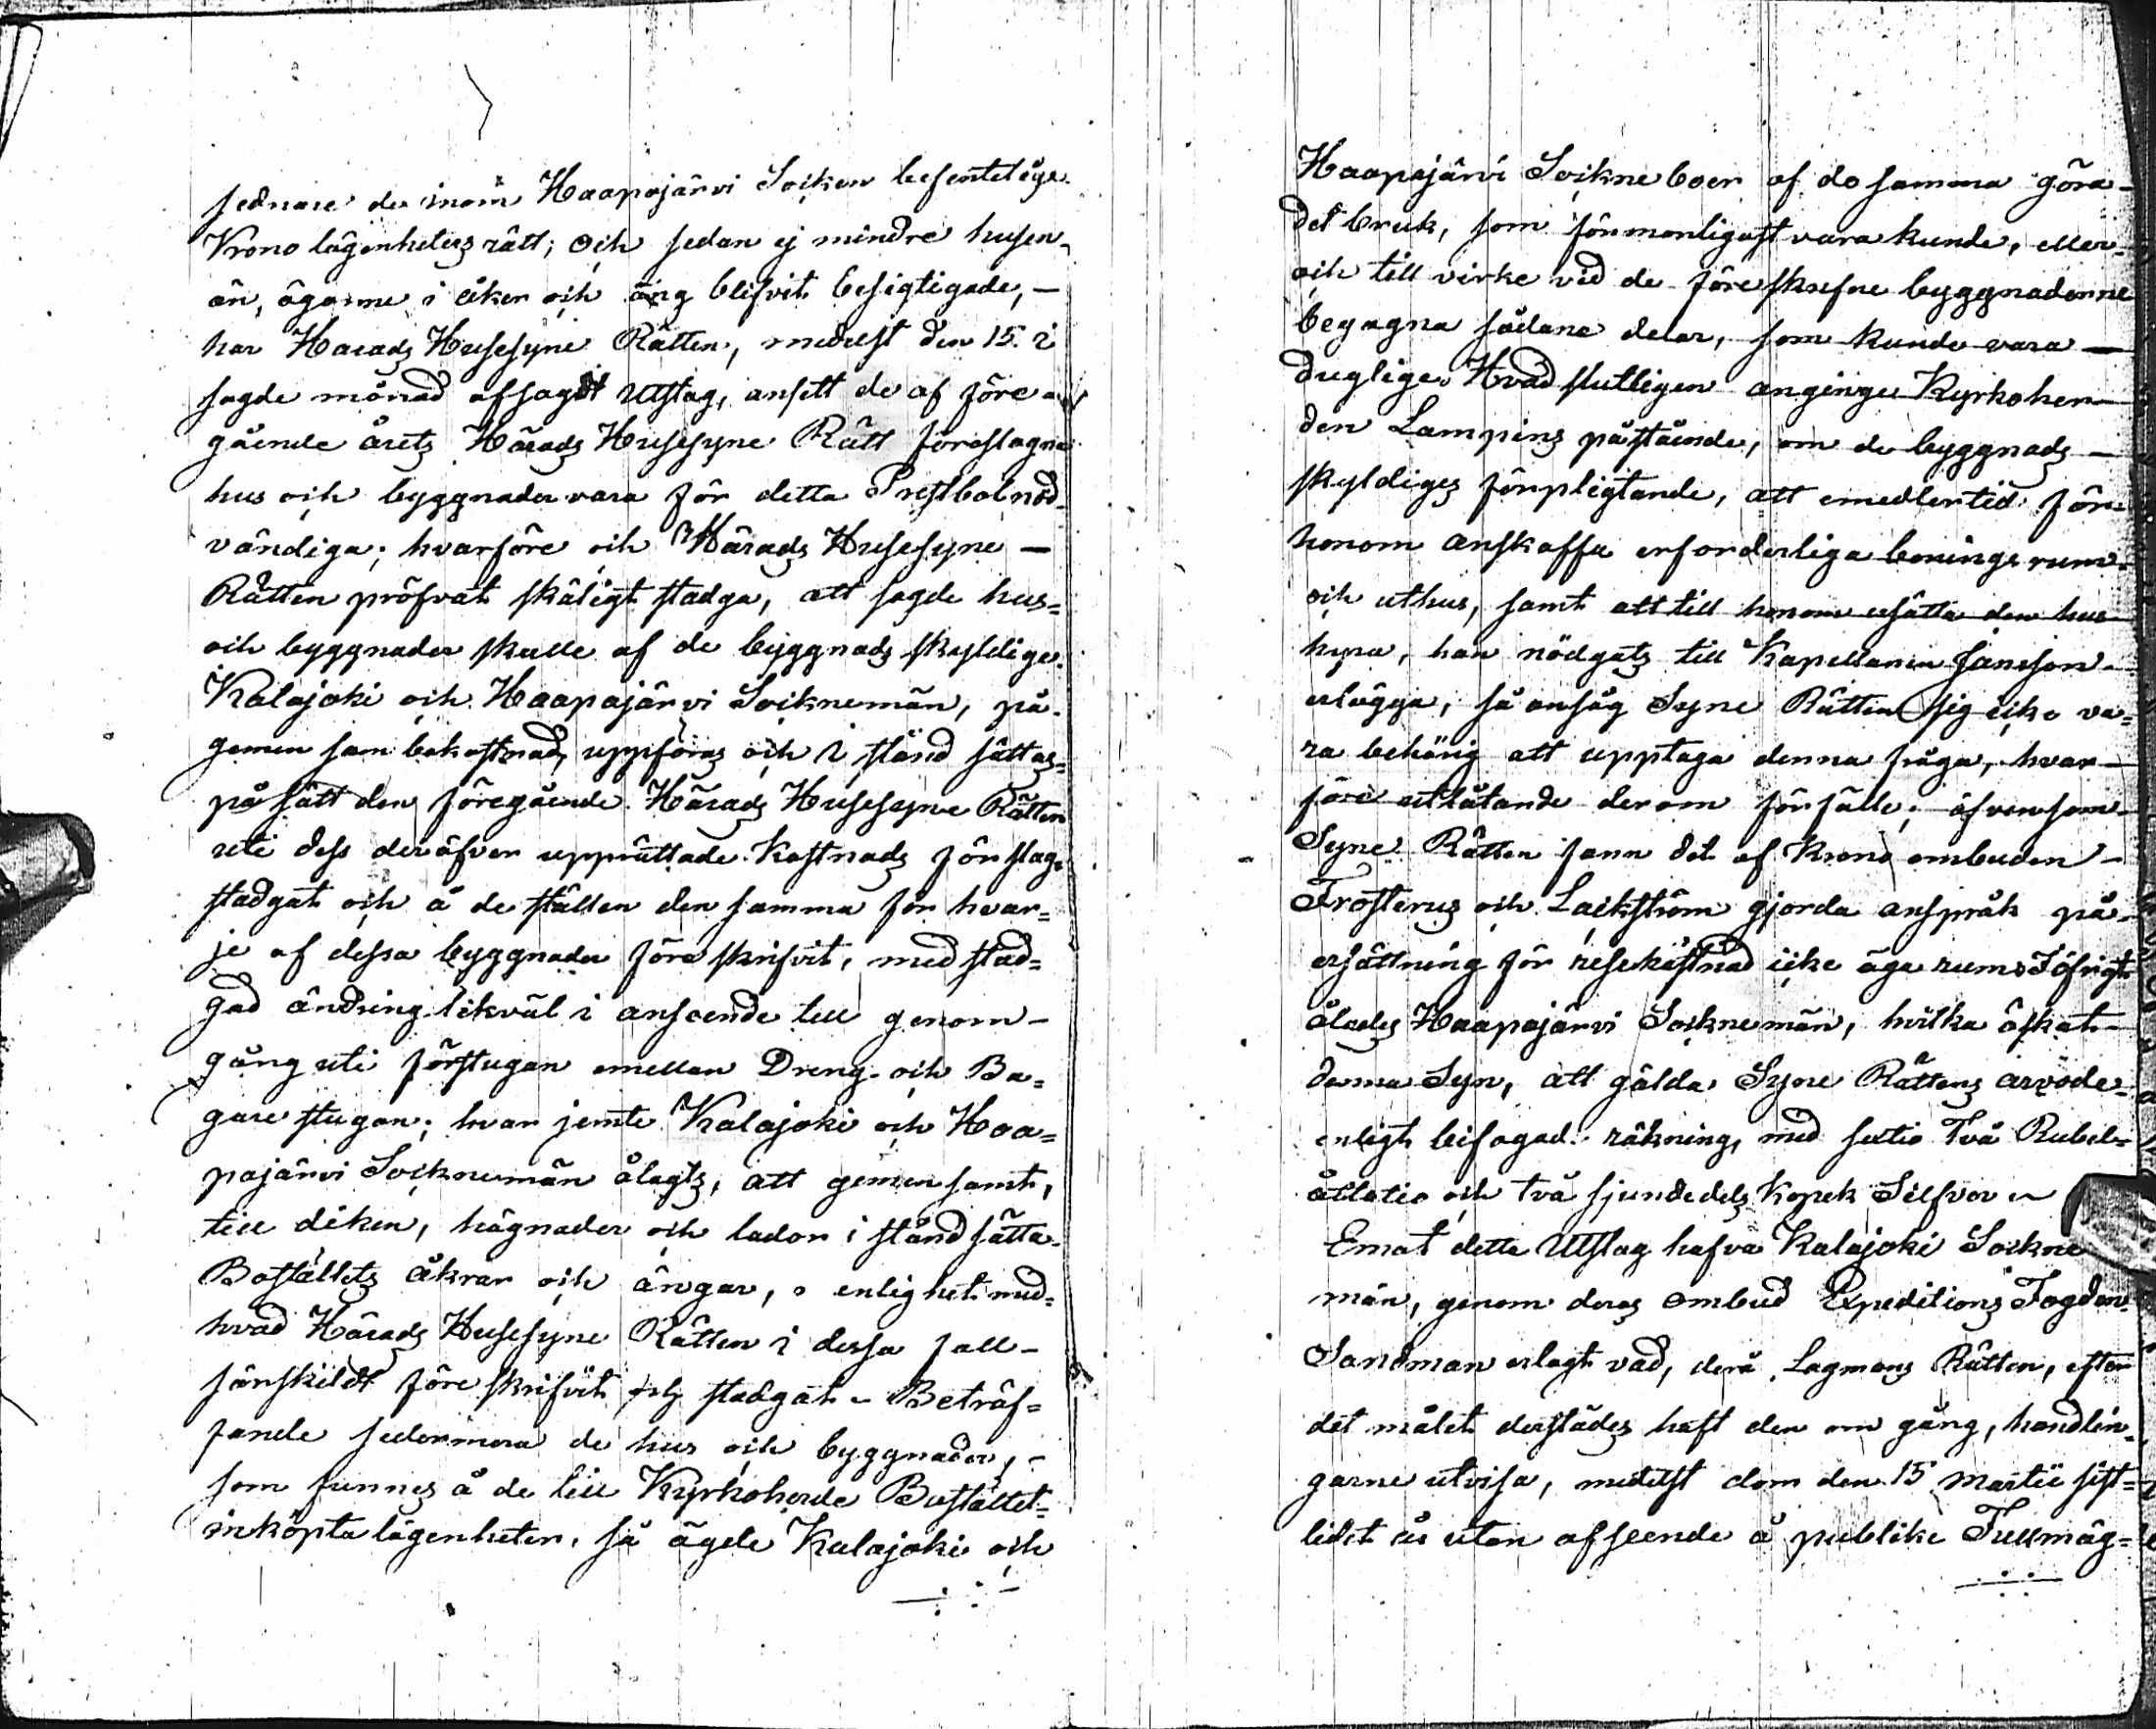 sednare de inom Haapajärvi Socken befintelige
Krono lägenheters rätt; och sedan ej mindre husen,
än, ägorne i åker och äng blifvit besigtigade, —
har Härads Husesyne Rätten, medelst den 15. i
sagde månad afsagdt Utslag, ansett de af före
gående årets Härads Husesyne Rätt föreslagne
hus och byggnader vara för detta Prestbol nöd-
vändiga; hvarföre och Härads Husesyne —
Rätten pröfvat skäligt stadga, att sagde hus=
och byggnader skulle af de byggnads skyldige
Kalajoki och Haapajärvi Socknemän, på
gemensam bekostnad, uppföras och i stånd sättas=
på sätt den föregående Härads Husesyne Rätten
uti dess deröfver upprättade Kostnads förslag,
stadgat och å de ställen den samma för hvar=
je af dessa byggnader föreskrifvit, med stad=
gad ändring likväl i anseende till genom-
gång uti förstugan emellan Dreng- och Ba=
gare stugan; hvar jemte Kalajoki och Haa=
pajärvi Socknemän ålagts, att gemensamt,
till diken, hägnader och lador i stånd sätta
Boställets åkrar och ängar, i enlighet med=
hvad Härads Husesyne Rätten i dessa fall-
särskildt föreskrifvit och stadgat. Beträf=
fande sedermera de hus och byggnader, -
som funnes å de till Kyrkoherde Bostället=
inköpta lägenheter, så ägde Kalajoki och
Haapajärvi Sockneboer af de samma göra
det bruk, som förmonligast vara kunde, eller
och till virke vid de föreskrefne byggnaderne
begagna sådane delar, som kunde vara —
duglige. Hvad slutligen anginge Kyrkoher-
den Lampins påstående, om de byggnads —
skyldiges förpligtande, att emedlertid för
honom anskaffa erforderliga bonings rum
och uthus, samt att till honom ersätta den hus
hyra, han nödgats till Kapellanen Jansson
erlägga, så ansåg Syne Rätten sig icke va=
ra behörig att upptaga denna fråga, hvar-
före utlåtande derom förfälle; äfvensom
Syne Rätten fann det af Krono ombuden -
Frosterus och Lackström gjorda anspråk på
ersättning för resekostnad icke äga rum. I öfrigt
ålades Haapajärvi Socknemän, hvilka äskat
denna Syn, att gälda Syne Rättens arvode
enligt bifogad räkning, med sextio Två Rubel=
åttatio och två sjundedels Kopek Silfver.
Emot detta Utslag hafva Kalajoki Sockne
män, genom deras ombud Expeditions Fogden
Sandman erlagt vad, derå Lagmans Rätten, efter
det målet derstädes haft den om gång, handlin-
garne utvisa, medelst dom den 15 Martii sist=
lidet år utan afseende å publike Fullmäg=